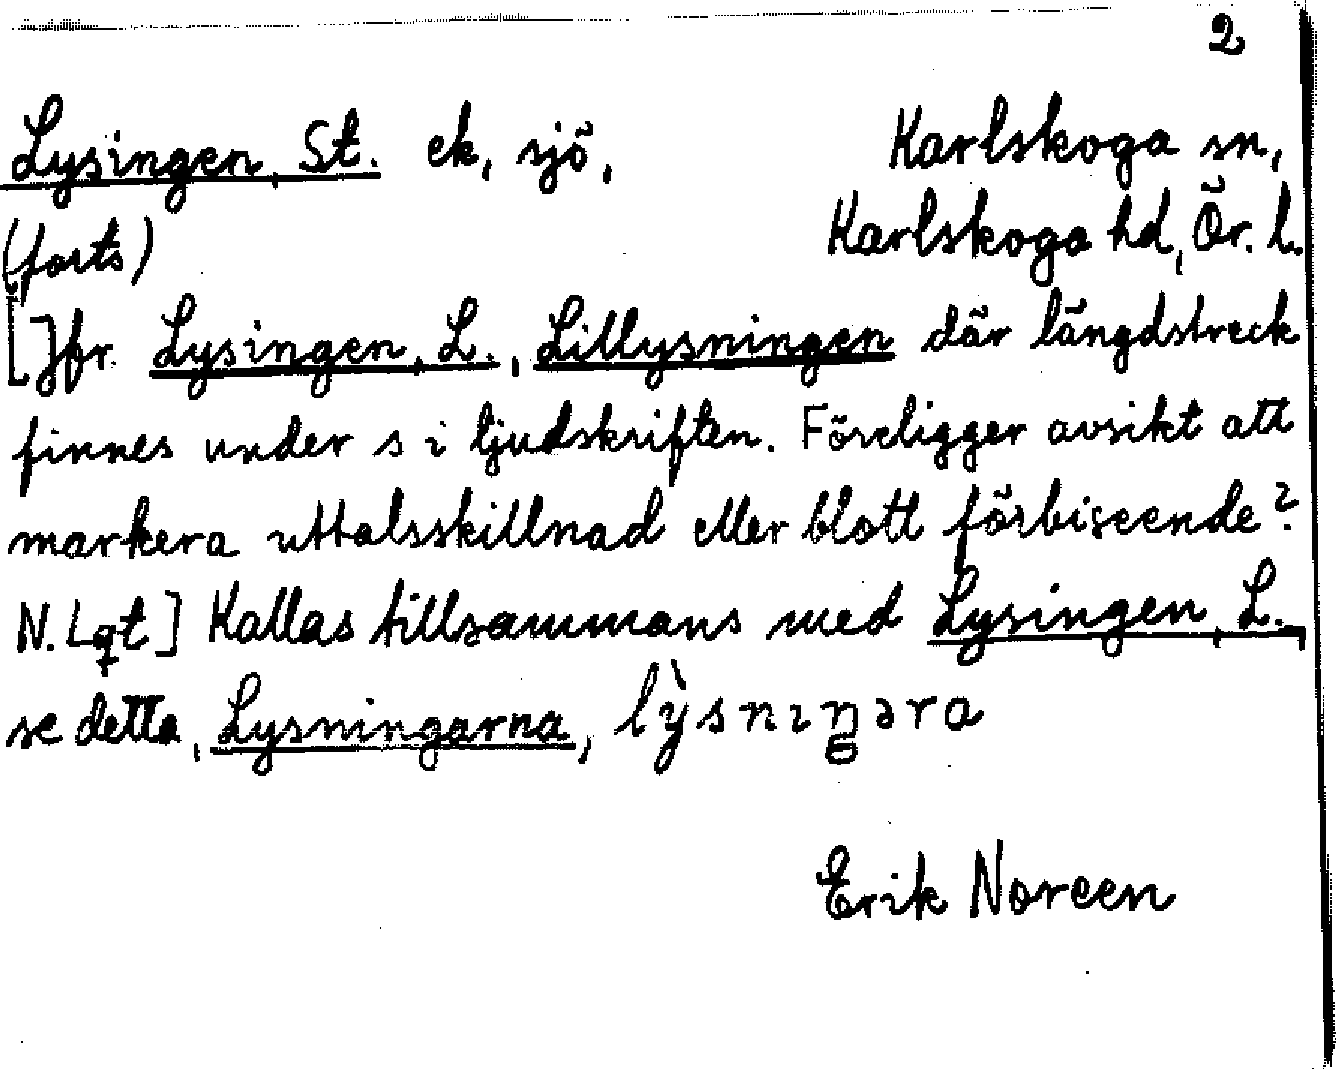 2
Lysingen, St. ek, sjö, Karlskoga sn,
(forts) Karlskoga hd, Ör. l.
[Jfr. Lysingen, L., Lillysningen där längdstreck
finnes under s i ljudskriften. Föreligger avsikt att
markera uttalsskillnad eller blott förbiseende?
N. Lqt] Kallas tillsammans med Lysingen, L.,
se detta, Lysningarna, lỳsnıŋəra
Erik Noreen